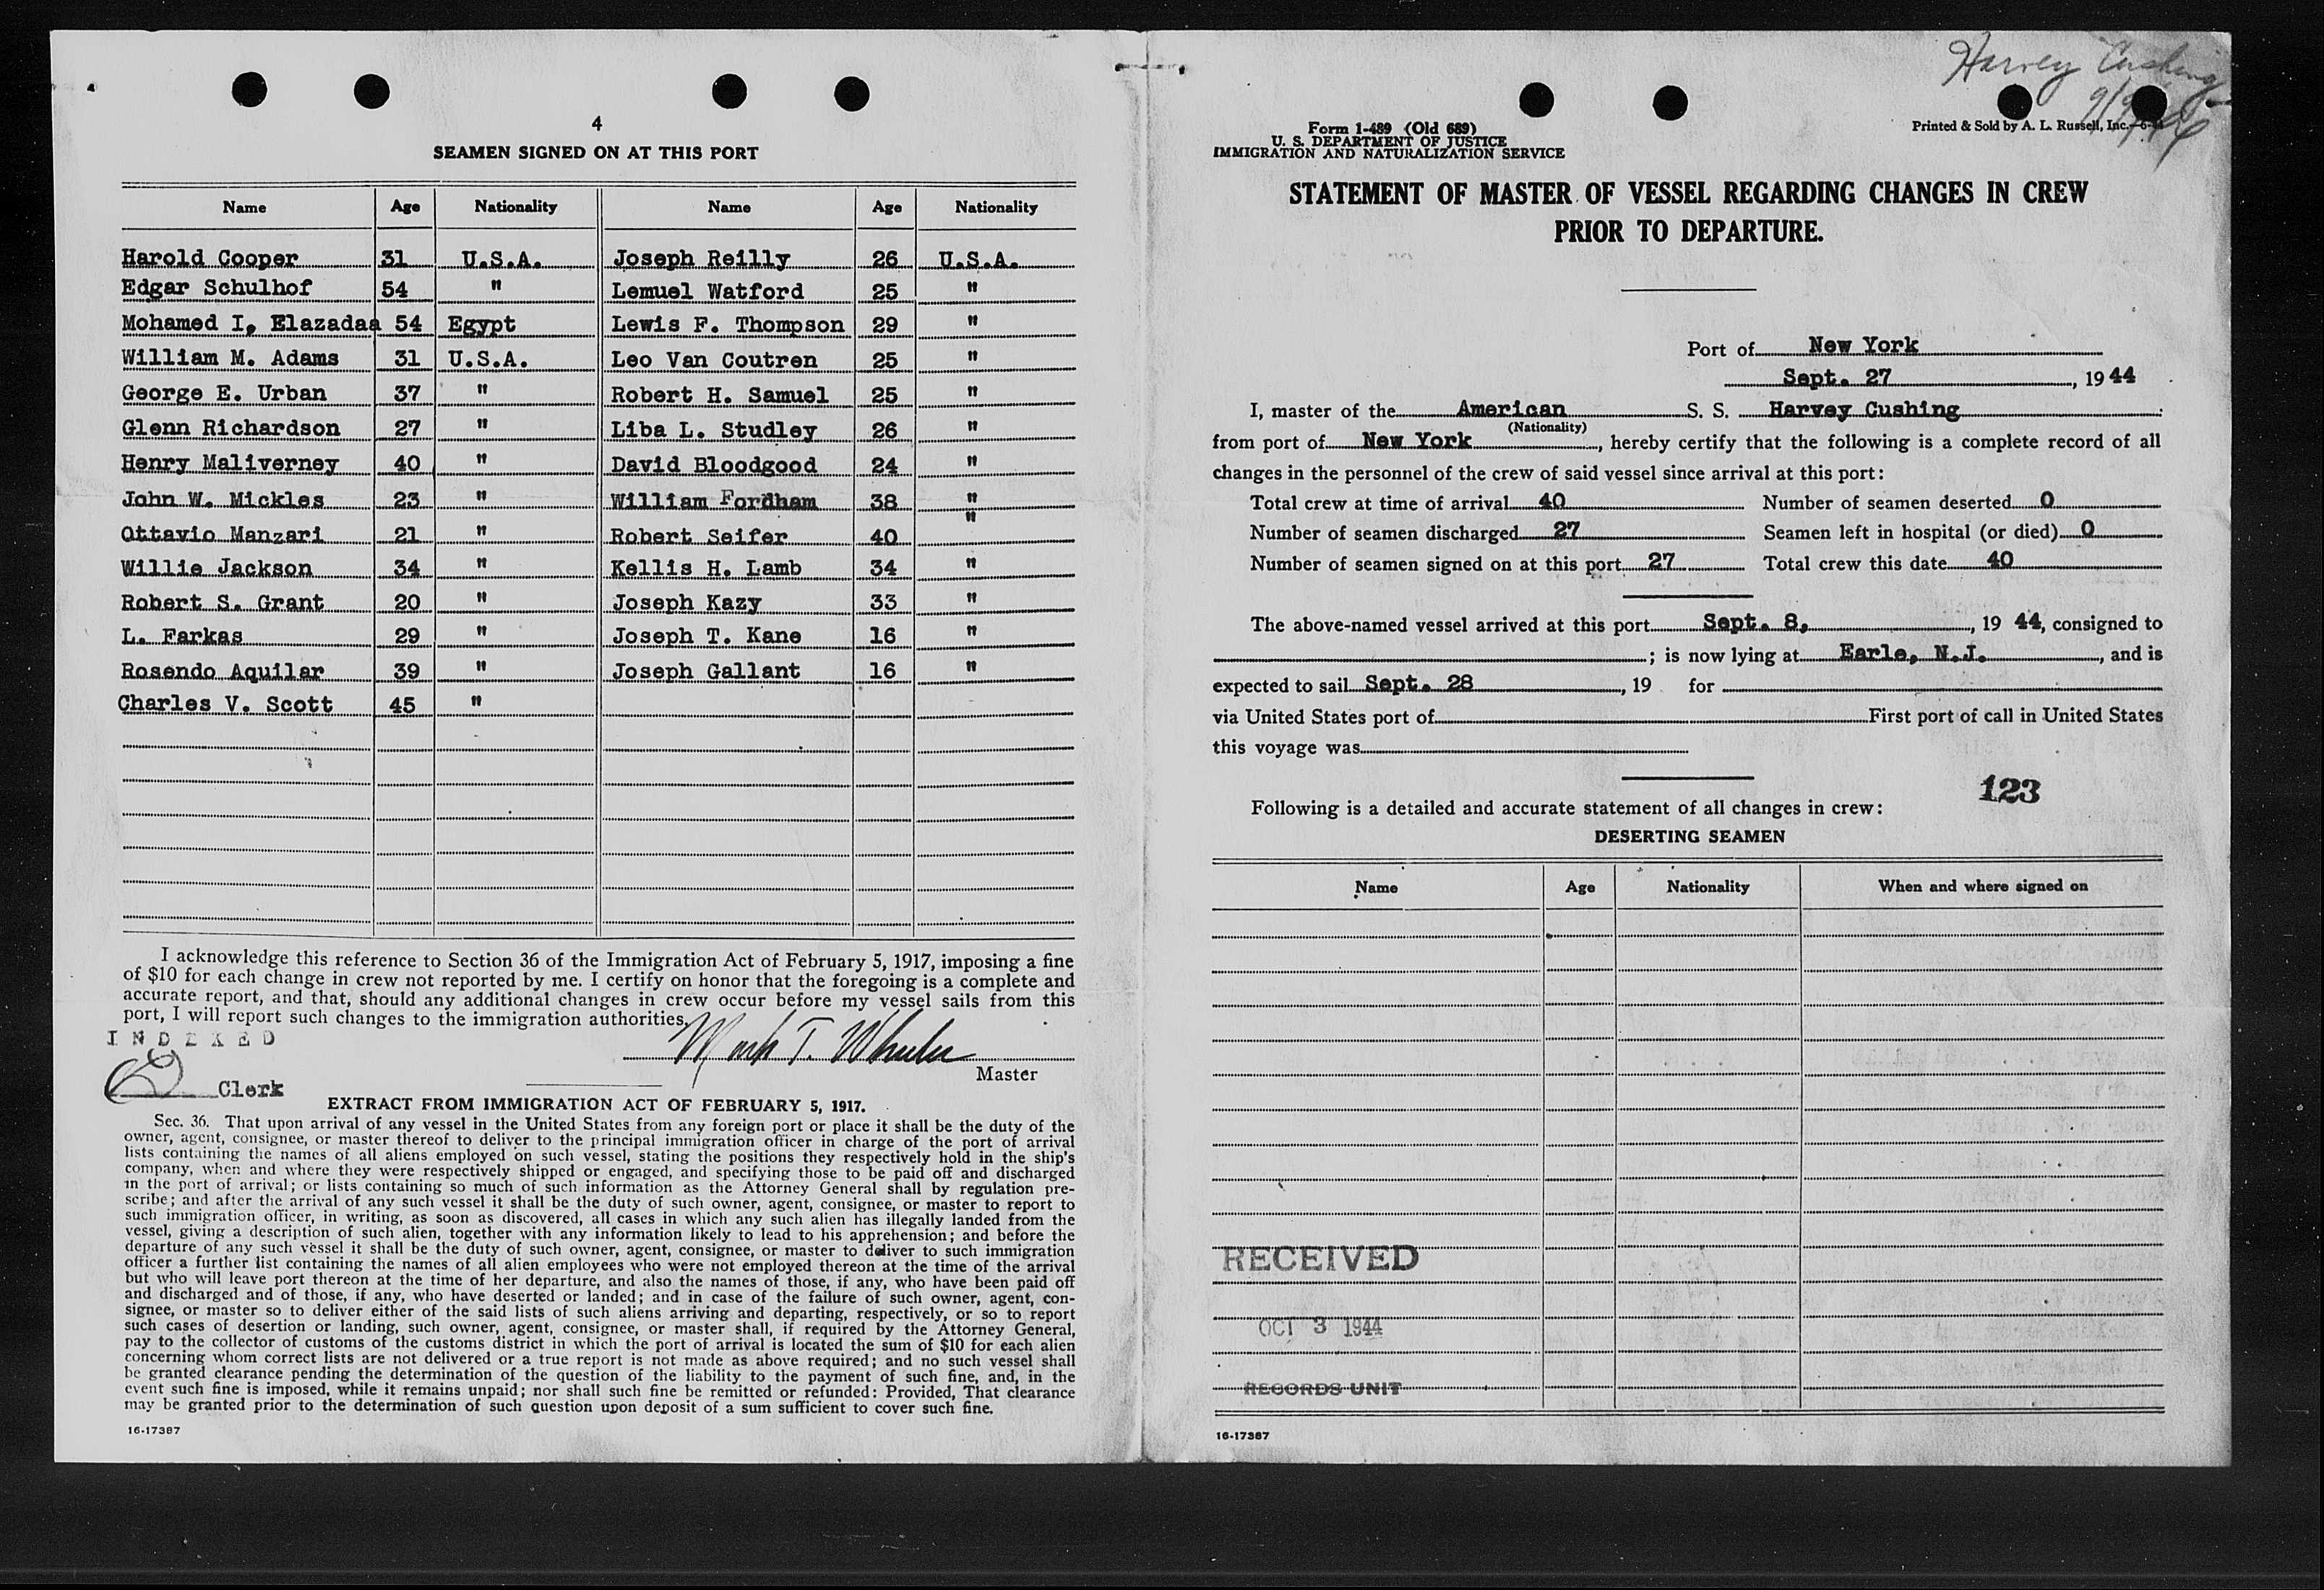 4
SEAMEN SIGNED ON AT THIS PORT
Name Age Nationality Name Age Nationality
Harold Cooper 31 U.S.A. Joseph Reilly 26 U.S.A.
Edgar Schulhof 54 " Lemuel Watford 25 "
Mohamed I. Elazadaa 54 Egypt Lewis F. Thompson 29 "
William M. Adams 31 U.S.A. Leo Van Coutren 25 "
George E. Urban 37 " Robert H. Samuel 25 "
Glenn Richardson 27 " Liba L. Studley 26 "
Henry Maliverney 40 " David Bloodgood 24 "
John W. Mickles 23 " William Fordham 38 "
Ottavio Manzari 21 " Robert Seifer 40 "
Willie Jackson 34 " Kellis H. Lamb 34 "
Robert S. Grant 20 " Joseph Kazy 33 "
L. Farkas 29 " Joseph T. Kane 16 "
Rosendo Aquilar 39 " Joseph Gallant 16 "
Charles V. Scott 45 "
I acknowledge this reference to Section 36 of the Immigration Act of February 5, 1917, imposing a fine
of $10 for each change in crew not reported by me. I certify on honor that the foregoing is a complete and
accurate report, and that, should any additional changes in crew occur before my vessel sails from this
port, I will report such changes to the immigration authorities.
INDEXED
Mark T. Wheeler
Master
Clerk
EXTRACT FROM IMMIGRATION ACT OF FEBRUARY 5, 1917.
Sec. 36. That upon arrival of any vessel in the United States from any foreign port or place it shall be the duty of the
owner, agent, consignee, or master thereof to deliver to the principal immigration officer in charge of the port of arrival
lists containing the names of all aliens employed on such vessel, stating the positions they respectively hold in the ship's
company, when and where they were respectively shipped or engaged, and specifying those to be paid off and discharged
in the port of arrival; or lists containing so much of such information as the Attorney General shall by regulation pre-
scribe; and after the arrival of any such vessel it shall be the duty of such owner, agent, consignee, or master to report to
such immigration officer, in writing, as soon as discovered, all cases in which any such alien has illegally landed from the
vessel, giving a description of such alien, together with any information likely to lead to his apprehension; and before the
departure of any such vessel it shall be the duty of such owner, agent, consignee, or master to deliver to such immigration
officer a further list containing the names of all alien employees who were not employed thereon at the time of the arrival
but who will leave port thereon at the time of her departure, and also the names of those, if any, who have been paid off
and discharged and of those, if any, who have deserted or landed; and in case of the failure of such owner, agent, con-
signee, or master so to deliver either of the said lists of such aliens arriving and departing, respectively, or so to report
such cases of desertion or landing, such owner, agent, consignee, or master shall, if required by the Attorney General,
pay to the collector of customs of the customs district in which the port of arrival is located the sum of $10 for each alien
concerning whom correct lists are not delivered or a true report is not made as above required; and no such vessel shall
be granted clearance pending the determination of the question of the liability to the payment of such fine, and, in the
event such fine is imposed, while it remains unpaid; nor shall such fine be remitted or refunded: Provided, That clearance
may be granted prior to the determination of such question upon deposit of a sum sufficient to cover such fine.
16-17387
Harvey Cushing
Form 1-489 (Old 689)
U. S. DEPARTMENT OF JUSTICE
IMMIGRATION AND NATURALIZATION SERVICE
Printed & Sold by A. L. Russell, Inc.
STATEMENT OF MASTER OF VESSEL REGARDING CHANGES IN CREW
PRIOR TO DEPARTURE.
Port of New York
Sept. 27, 1944
I, master of the American S. S. Harvey Cushing
(Nationality)
from port of New York, hereby certify that the following is a complete record of all
changes in the personnel of the crew of said vessel since arrival at this port:
Total crew at time of arrival 40 Number of seamen deserted 0
Number of seamen discharged 27 Seamen left in hospital (or died) 0
Number of seamen signed on at this port 27 Total crew this date 40
The above-named vessel arrived at this port Sept. 8, , 19 44, consigned to
; is now lying at Earle, N.J. , and is
expected to sail Sept. 28 , 19 for
via United States port of First port of call in United States
this voyage was
123
Following is a detailed and accurate statement of all changes in crew:
DESERTING SEAMEN
Name Age Nationality When and where signed on
RECEIVED
OCT 3 1944
RECORDS UNIT
16-17387